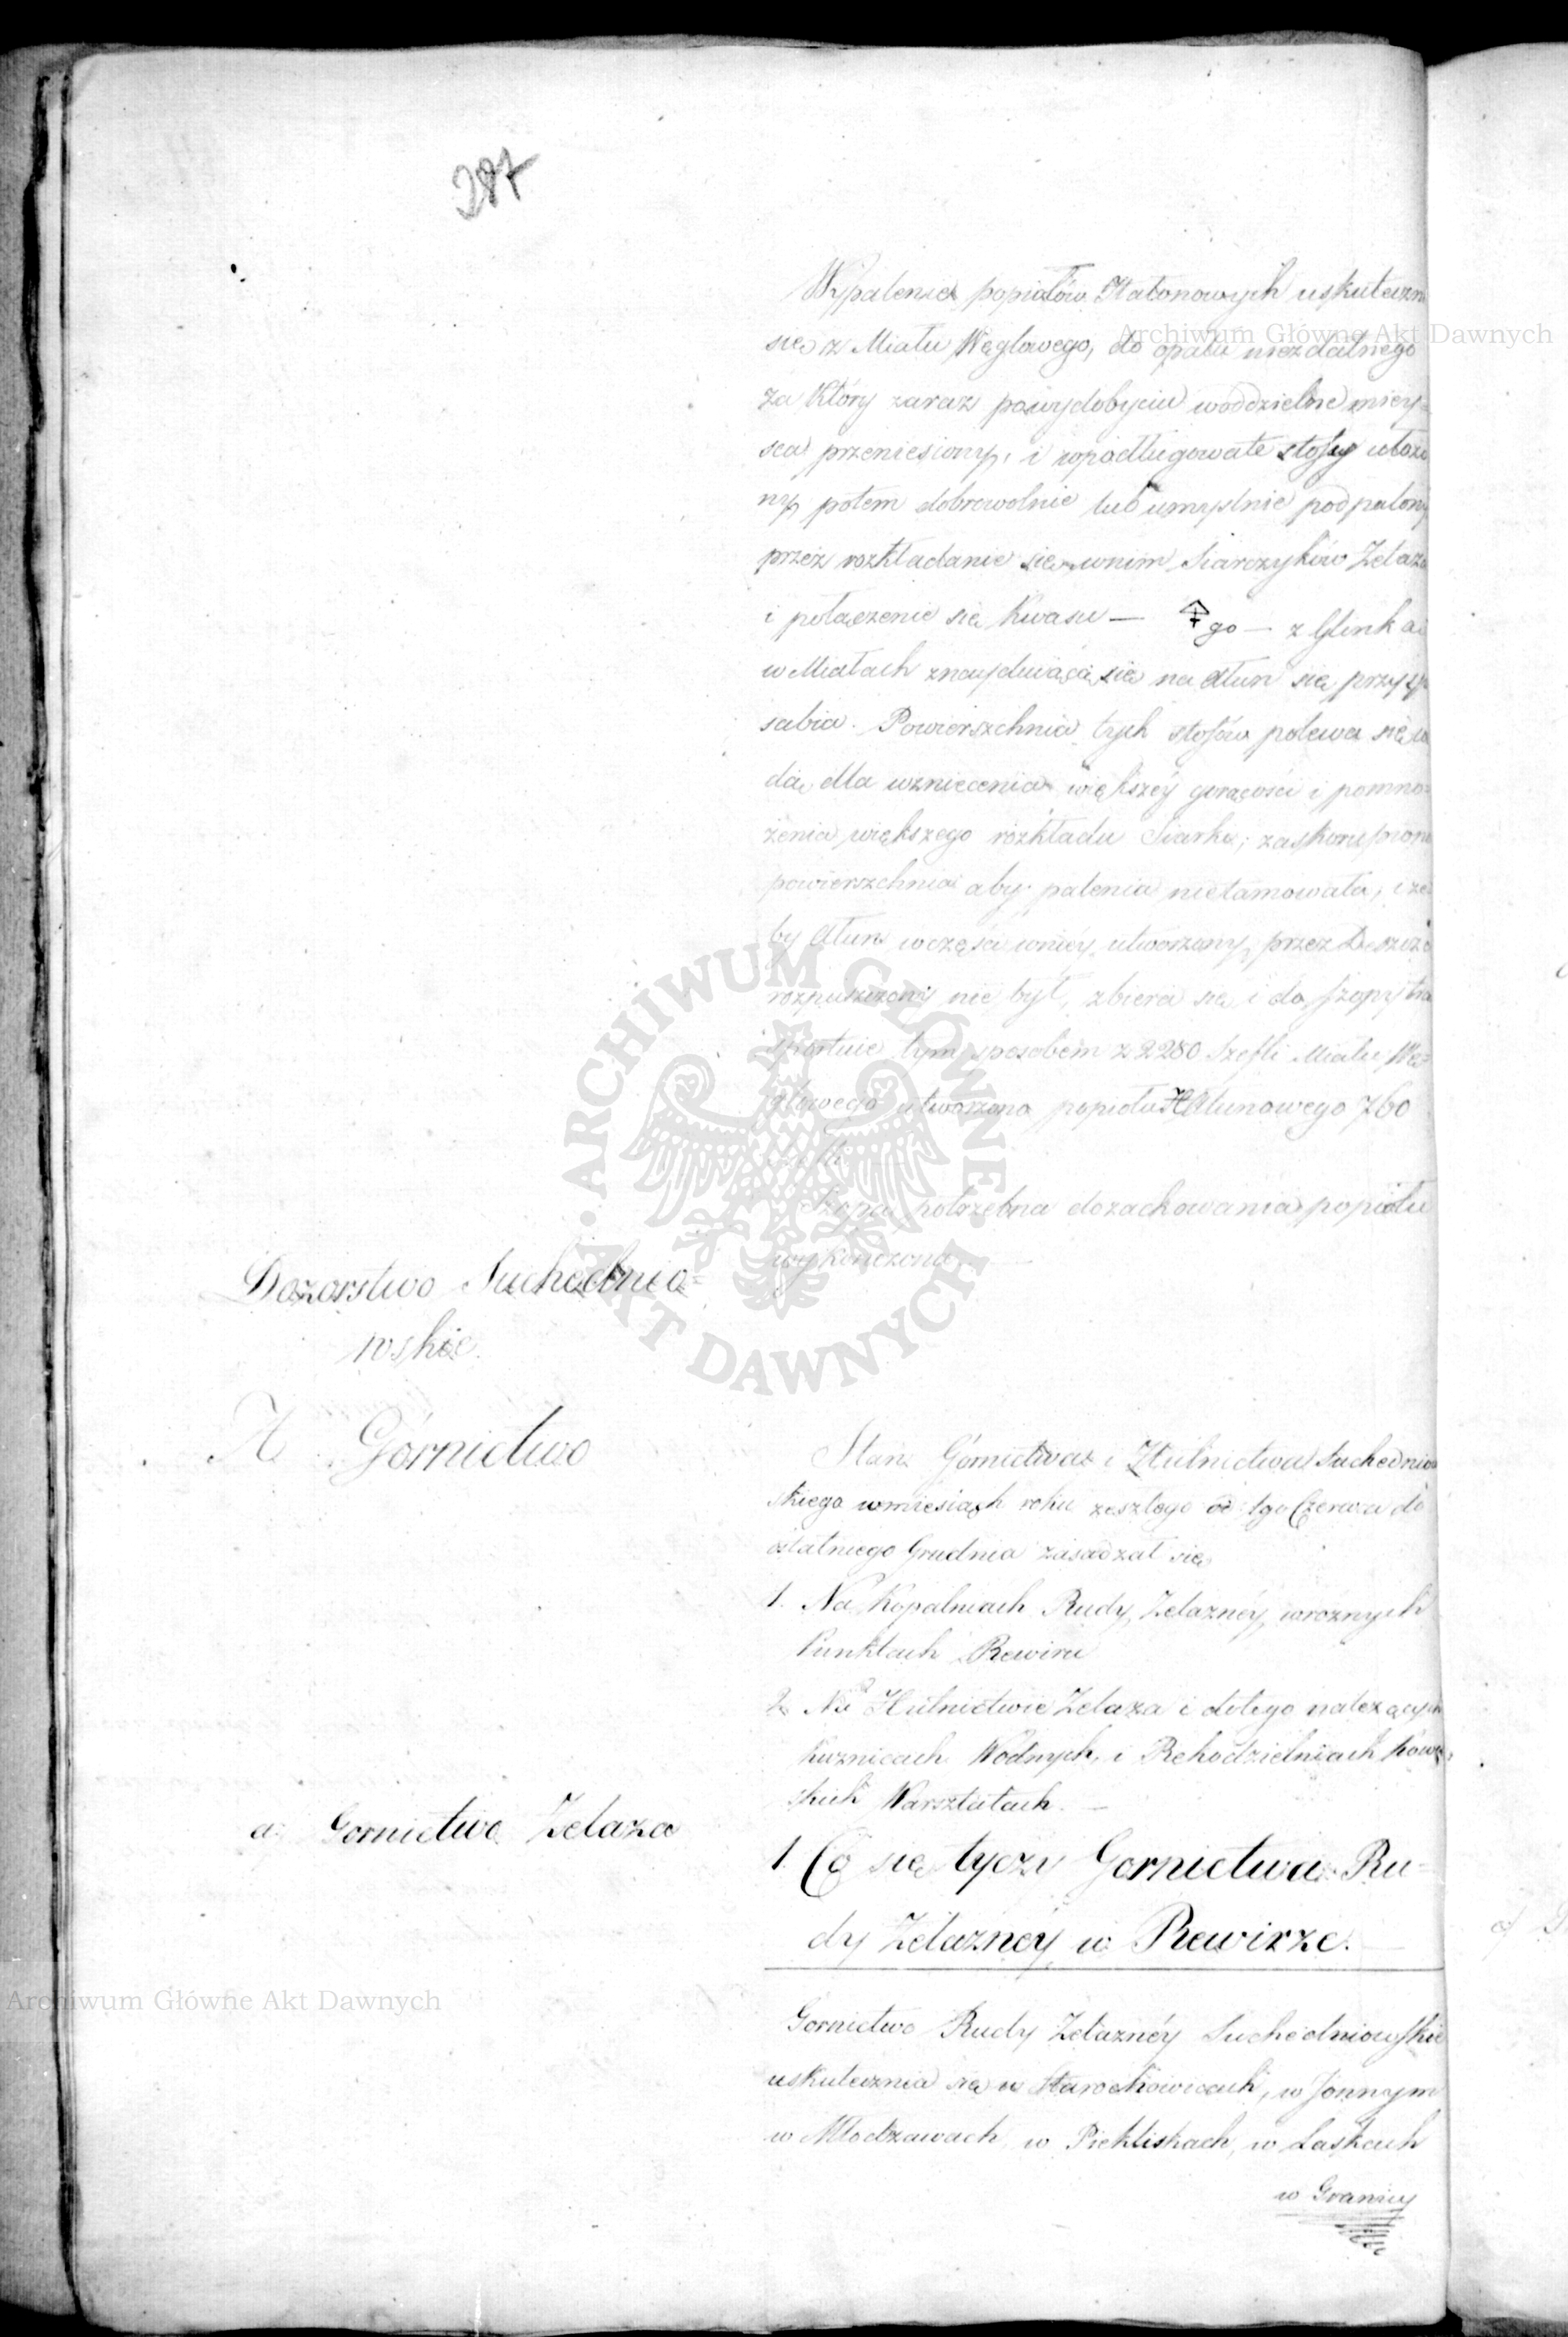 287
Wypalenie popiołów Hałonowych uskuteczn
się z Miału Węglowego, do opału niezdatnego
za który zaraz powydobyciu woddzielne miey=
sca przeniesiony, i wpodługowate stosy ułożo
ny, potem dobrowolnie lub umyslnie podpalony
przez rozkładanie się wnim Siarczyków Żelaza
i połączenie się Kwasu — go — z Glinką
w Miałach znayduiącą się na Ałun się przyspo
sabia. Powierszchnia tych stosów polewa się wo
dą, dla wzniecenia większéy gorącosci i pomno=
żenia większego rozkładu Siarki; zaskorupiona
powierszchnia aby palenia nietamowała, i że
by Ałun wczęsci wniéy utworzony, przez Deszcze
rozpuszczony nie był, zbiera się i do szopy tran
sportuie tym sposobem z 2280 Szefli Miału Wę=
glowego utworzono popiołu Ałunowego 760
szefli.
Szopa potrzebna dozachowania popiołu
wykończona. —
Dozorstwo Suchednio=
wskie.
A. Górnictwo
Stan Górnictwa i Hutnictwa Suchednio
skiego wmiesiącach roku zeszłego od 1go Czerwca do
ostatniego Grudnia zasadzał się
1. Na Kopalniach Rudy Żelaznéy, wroznych
Punktach Rewiru
2. Na Hutnictwie Żelaza i dotego należących
Kuznicach Wodnych, i Rekodzielniach Kowal=
skich Warsztatach. —
a. Gornictwo Żelaza
1. Co się tyczy Gornictwa Ru=
dy Żelaznéy w Rewirze. —
Gornictwo Rudy Żelaznéy Suchedniowskie
uskutecznia się w Starochowicach, w Jonnym
w Młodzawach, w Piekliskach, w Laskach
w Granicy
Archiwum Główne Akt Dawnych
Archiwum Główne Akt Dawnych
ARCHIWUM GŁÓWNE AKT DAWNYCH